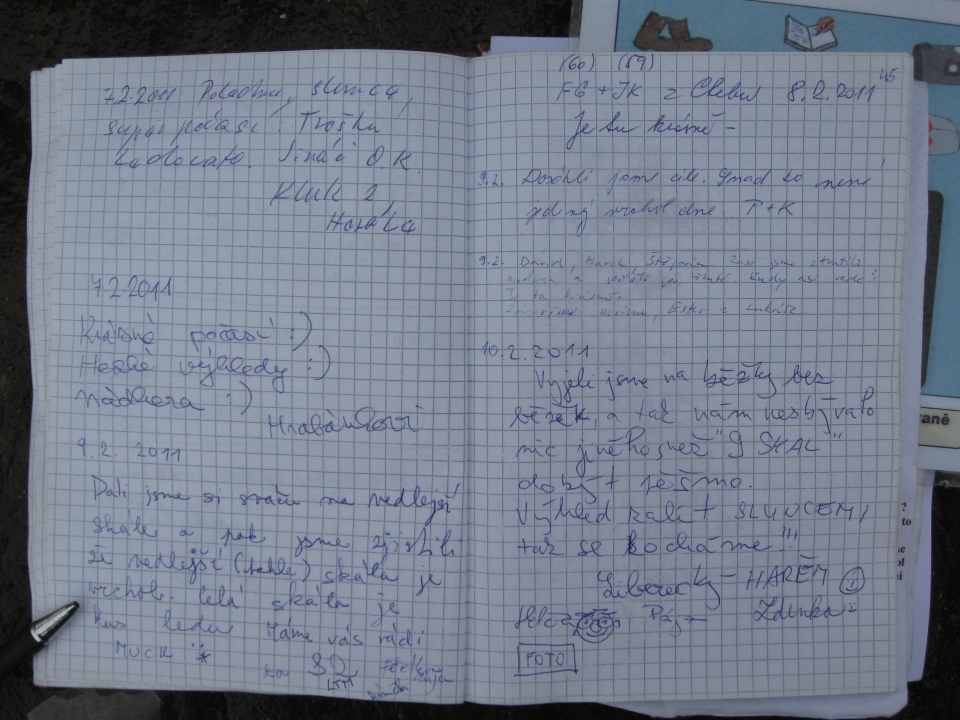 7.2.2011 Pohodka, slunce,
super počasí. Troška
zadocato. Jináč O.K.
Kluk 2
7.2.2011
Krásné počasí :)
Hezké výhledy :)
nádhera :)
Hrabánkovi
9.2. 2011
Dali jsme si sváču na vedlejší
skále a pak jsme zjistili
že vedlejší (tahle) skála je
vrchol. Celá skála je
kus ledu Máme vás rádi
MUCK
(60) (59)
45
FG + JK z 8.2.2011
Je tu krásně -
9.2. Dosáhli jsme cíle. Snad to není
jediný vrchol dne. P+K
9.2. David, Hanka, Štěpánka
10.2.2011
Vyjeli jsme na běžky bez
běžek, a tak nám nezbývalo
nic jiného než "9 SKAL"
dobýt pěšmo.
Výhled zalit SLUNCEM,
tak se kocháme!!!
Liberecký HARÉM
Pája Zdenka
FOTO
aně
? 
to